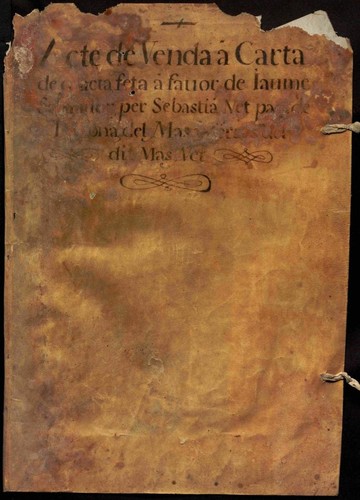 Acte de Venda á Carta
de gracia feta á fauor de Iaume
per Sebastiá Vet pages
del Mas
dit Mas Vet